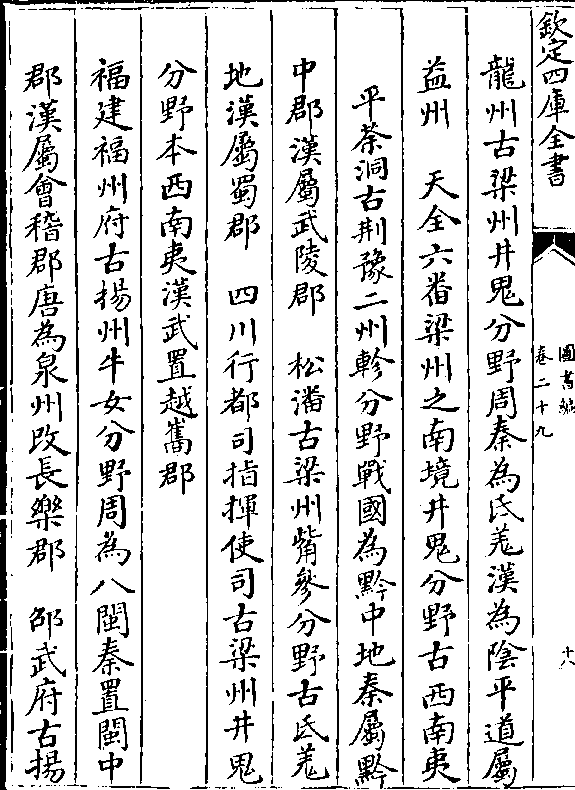 欽定四庫全書
圖書編
卷二十九
十八
龍州古梁州井鬼分野周秦為氐羌漢為陰平道屬
益州　天全六番梁州之南境井鬼分野古西南夷
平茶洞古荆豫二州軫分野戰國為黔中地秦屬黔
中郡漢屬武陵郡　松潘古梁州觜參分野古氐羌
地漢屬蜀郡　四川行都司指揮使司古梁州井鬼
分野本西南夷漢武置越嶲郡
福建福州府古揚州牛女分野周為八閩秦置閩中
郡漢屬會稽郡唐為泉州改長樂郡　邵武府古揚